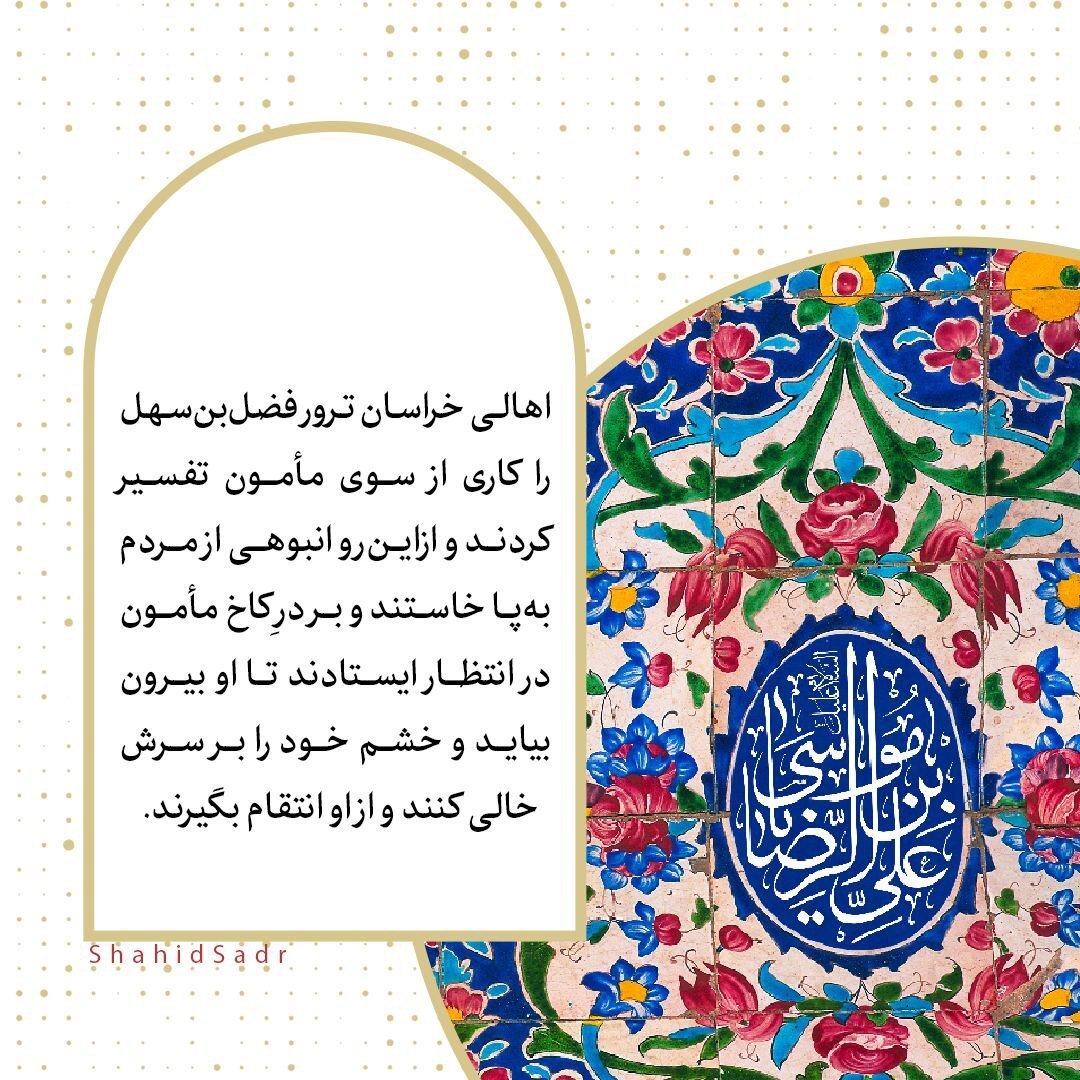 اهالی خراسان ترور فضل‌بن‌سهل
را کاری از سوی مأمون تفسیر
کردند و ازاین‌رو انبوهی از مردم
به‌پا خاستند و بر درِ کاخ مأمون
در انتظار ایستادند تا او بیرون
بیاید و خشم خود را بر سرش
خالی کنند و از او انتقام بگیرند.
ShahidSadr
علی بن موسی الرضا